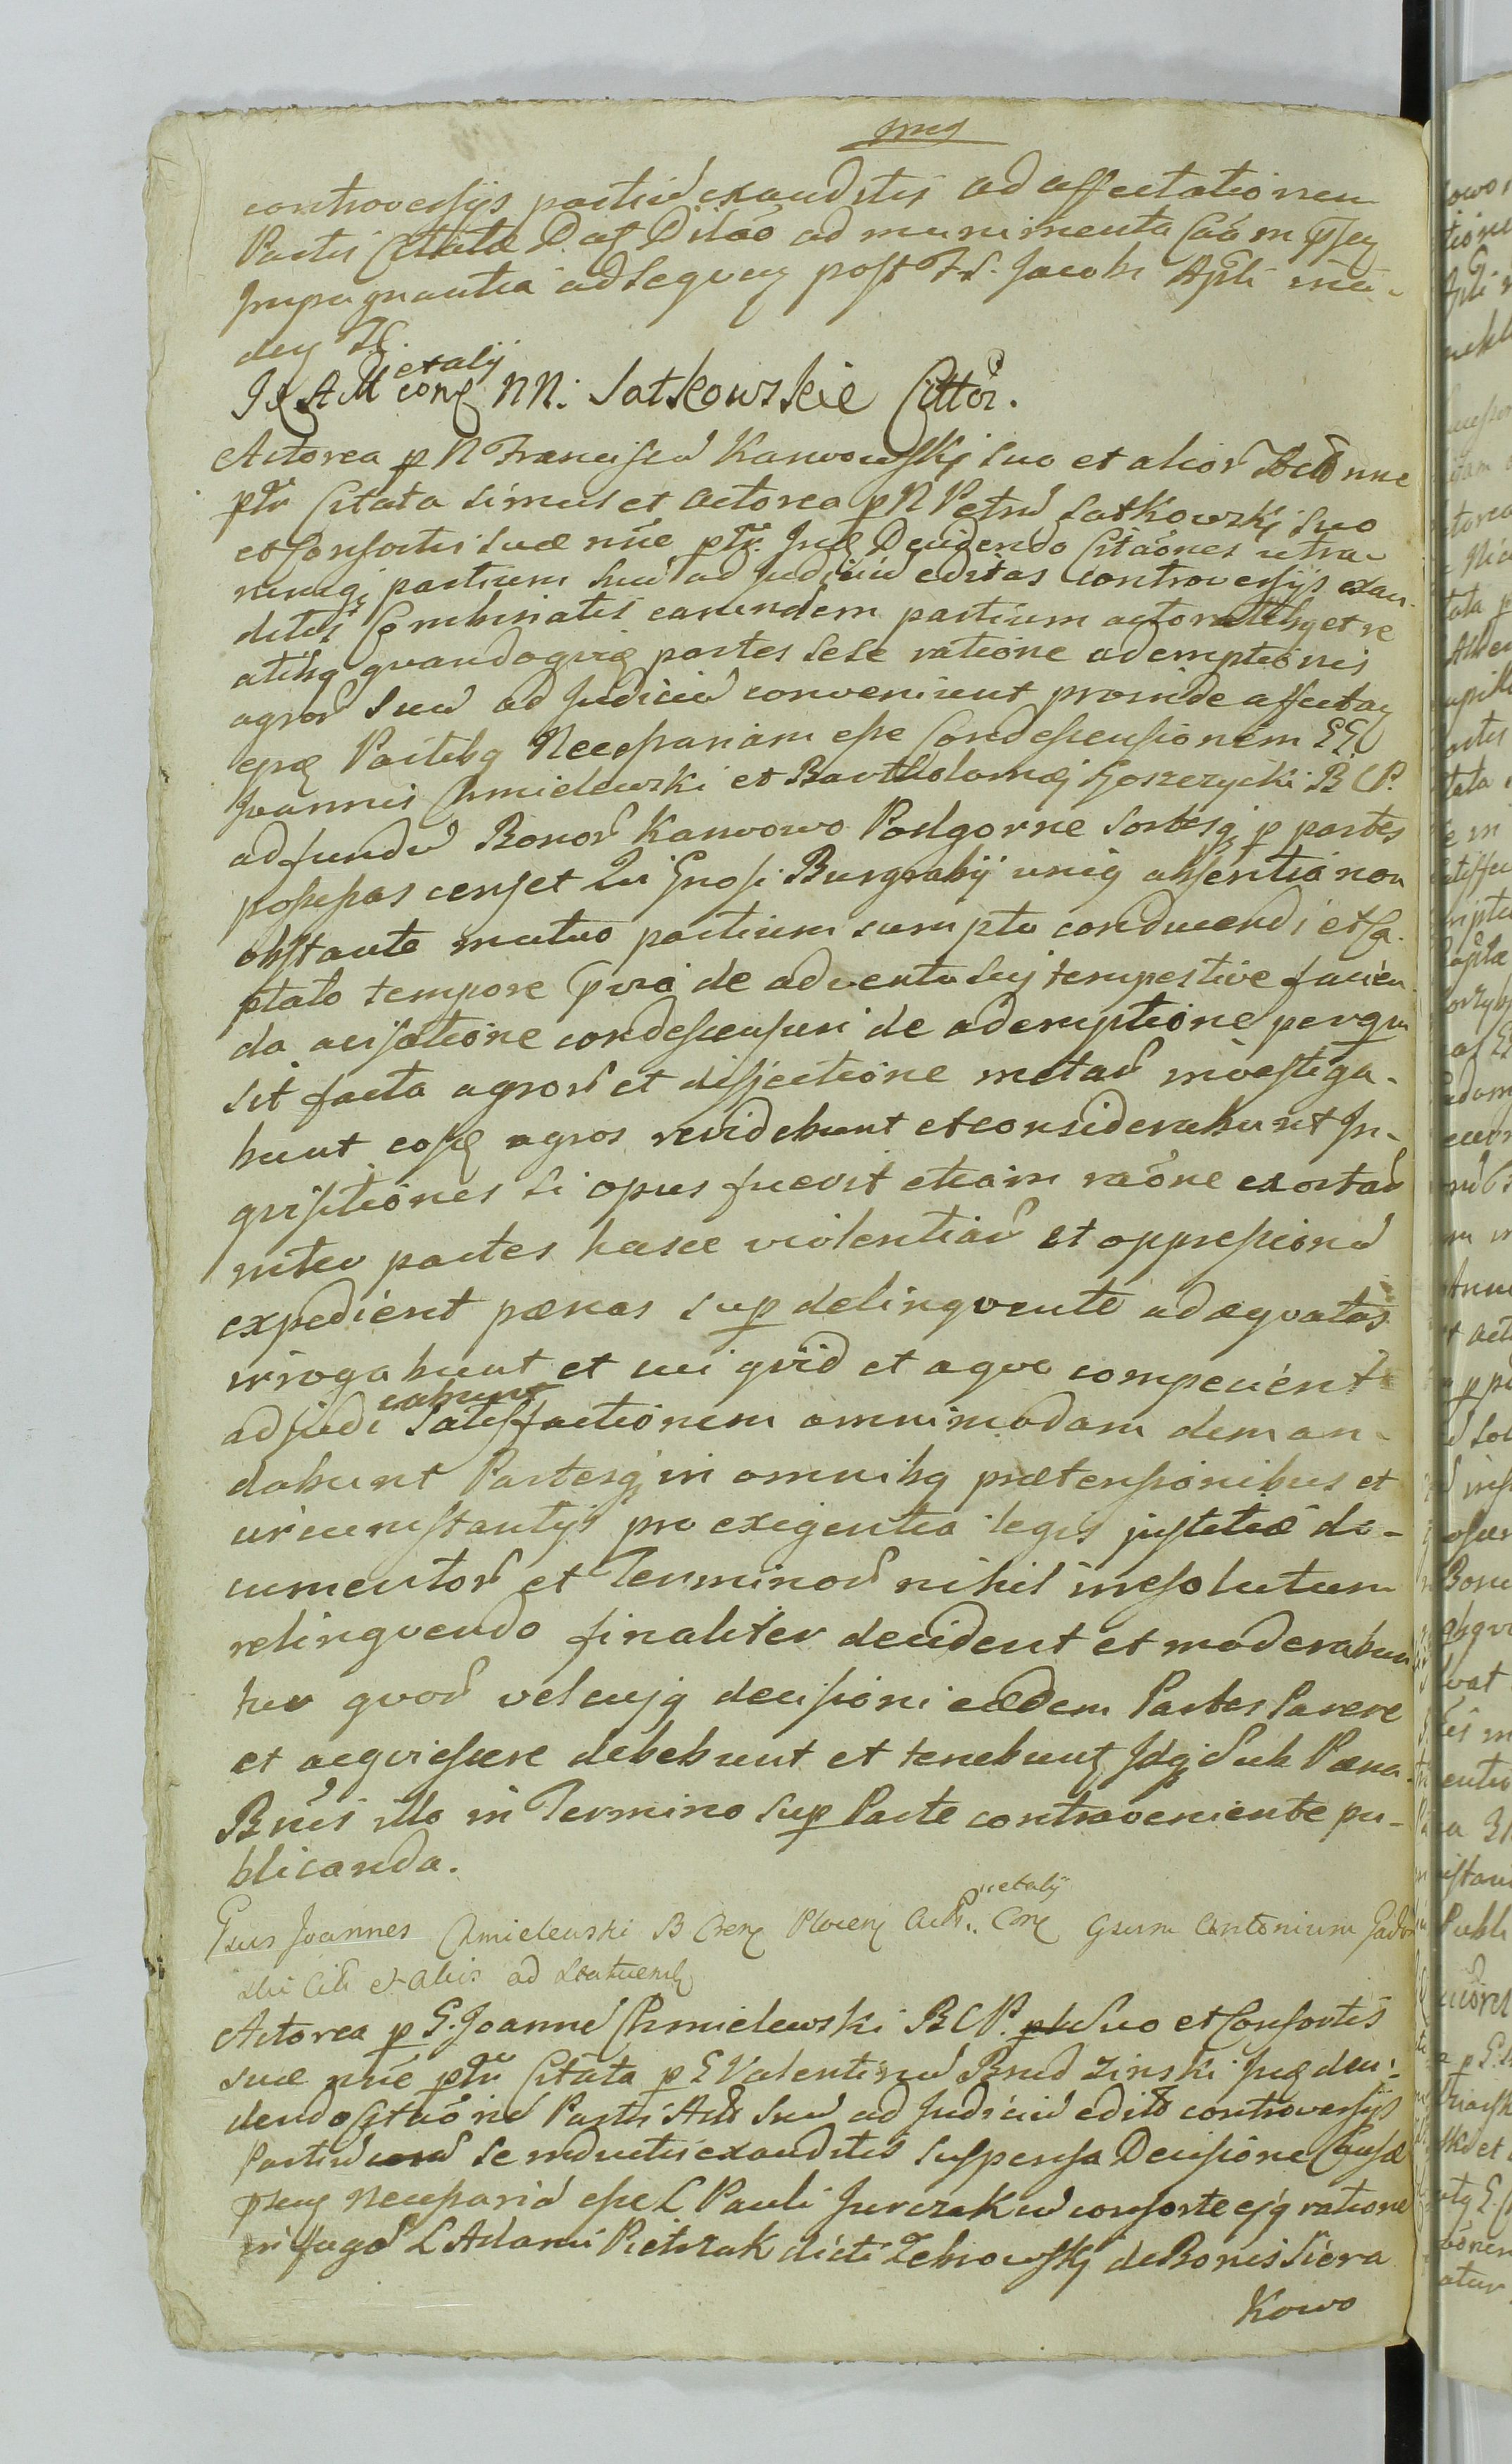 controversijs partiū exauditis ad affectationem
Partis Citatæ D. af Dilaõ ad munimenta Caam pser
Impugnantia ad Sequen post F S. Jacobi Apli
den
et alij
conę NN: Satkowskie Citto2.
Actorea p N Franciscū Karwowskj suo et alior Act nne
ptr Citata simul et actorea p N Petrū Satkowskj suo
et Consortis suæ nñe ptr. Jnd Decidendo Citãones utra-
rumqȝ partium suū ad Judiciū editas controversijs exau-
ditis Combinatis earundem partium actoratibȝ et re
atibȝ quandoqvid partes sese ratione ademptionis
agror suū ad Judiciū convenirent proinde affectan
Partibȝ Necessariam esse Condescensionem GG.
Joannis Chmielewski et Bartholomæj Goszczycki B C P.
ad fundū Bonorū Karwowo Podgorne sortesqȝ p partes
possessas censet Qui Gnosi Burgrabij unig absentia non
obstante mutuo partium sumptu conducendi et Ca-
ptato tempore pvia de adventu suj tempestive facien
da avisatione condescensuri de ademptione per qm
sit facta agrorū et dissectione metarū investiga-
bunt eosqȝ agros revidebunt et considerabunt In-
qvisitiones si opus fuerit etiam raõne exortarū
inter partes hasce violentiarū et oppressionū
expedient pænas sup delinqvente adæqvatas
irrogabunt et cui qvid et a qvo compecierit
cabunt
adjudi Satisfactionem omnimodam deman-
dabunt Partesqȝ in omnibȝ prætensionibus et
circumstantijs pro exigentia legis justitiæ do-
cumentorū et Terminorū nihil irresolutum
relinqvendo finaliter decident et moderabun
tur qvorū vel cujȝ decisioni eædem Partes Parere
et acqviescere debebunt et tenebuntȝ Jdqȝ sub Pæna
Bñis illo in Termino sup Parte contraveniente pu-
blicanda.
et alij
Gsus Joannes Chmielewski B Cren Plocen Act. Conę Gsum Antonium
Citt et Aliis ad Statuend
Actorea p G. Joannē Chmielewski B C P. suo et Consortis
suæ nñe ptr Citata p G Valentinū Brudzinski Jnd deci-
dendo Citãonē Partis Act suū ad Judiciū edit controversijs
Partiū se inductis exauditis suspensa Decisione Causæ
psen Necessariā esse L Pauli Jurczak cū consorte ejȝ ratione
L Adami Pietrzak dicti Zebrowskj de Bonis Siera
kowo